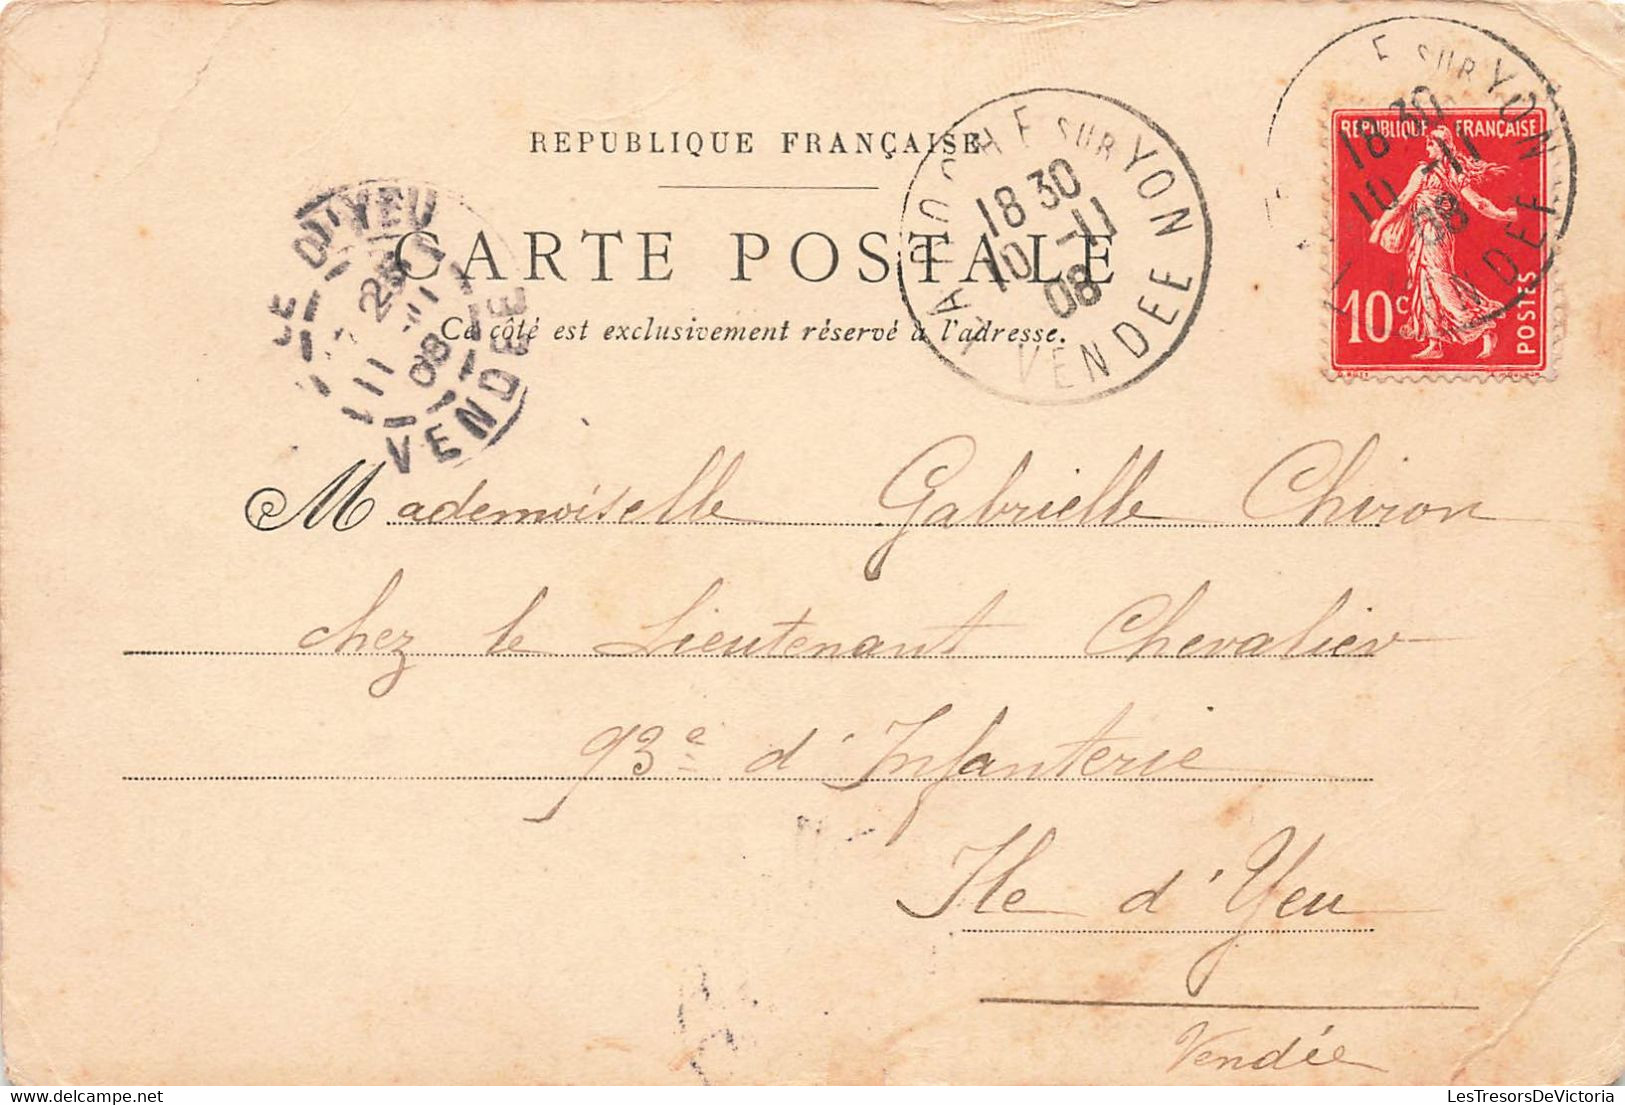 REPUBLIQUE FRANÇAISE
CARTE POSTALE
Ce côté est exclusivement réservé à l'adresse.
LA ROCHE SUR YON
18 30
10 -11
08
VENDEE
E SUR YON
18 30
10 -11
08
VENDEE
REPUBLIQUE FRANÇAISE
10c
POSTES
ILE D'YEU
11
08
VENDEE
Mademoiselle Gabrielle Chiron
chez le Lieutenant Chevalier
93e d'Infanterie
Ile d'Yeu
Vendée
LesTresorsDeVictoria
delcampe.net